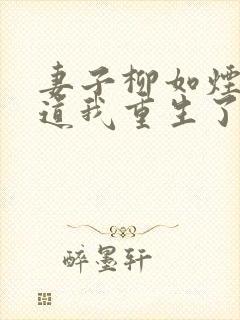 妻子柳如煙
道我重生了
醉墨轩